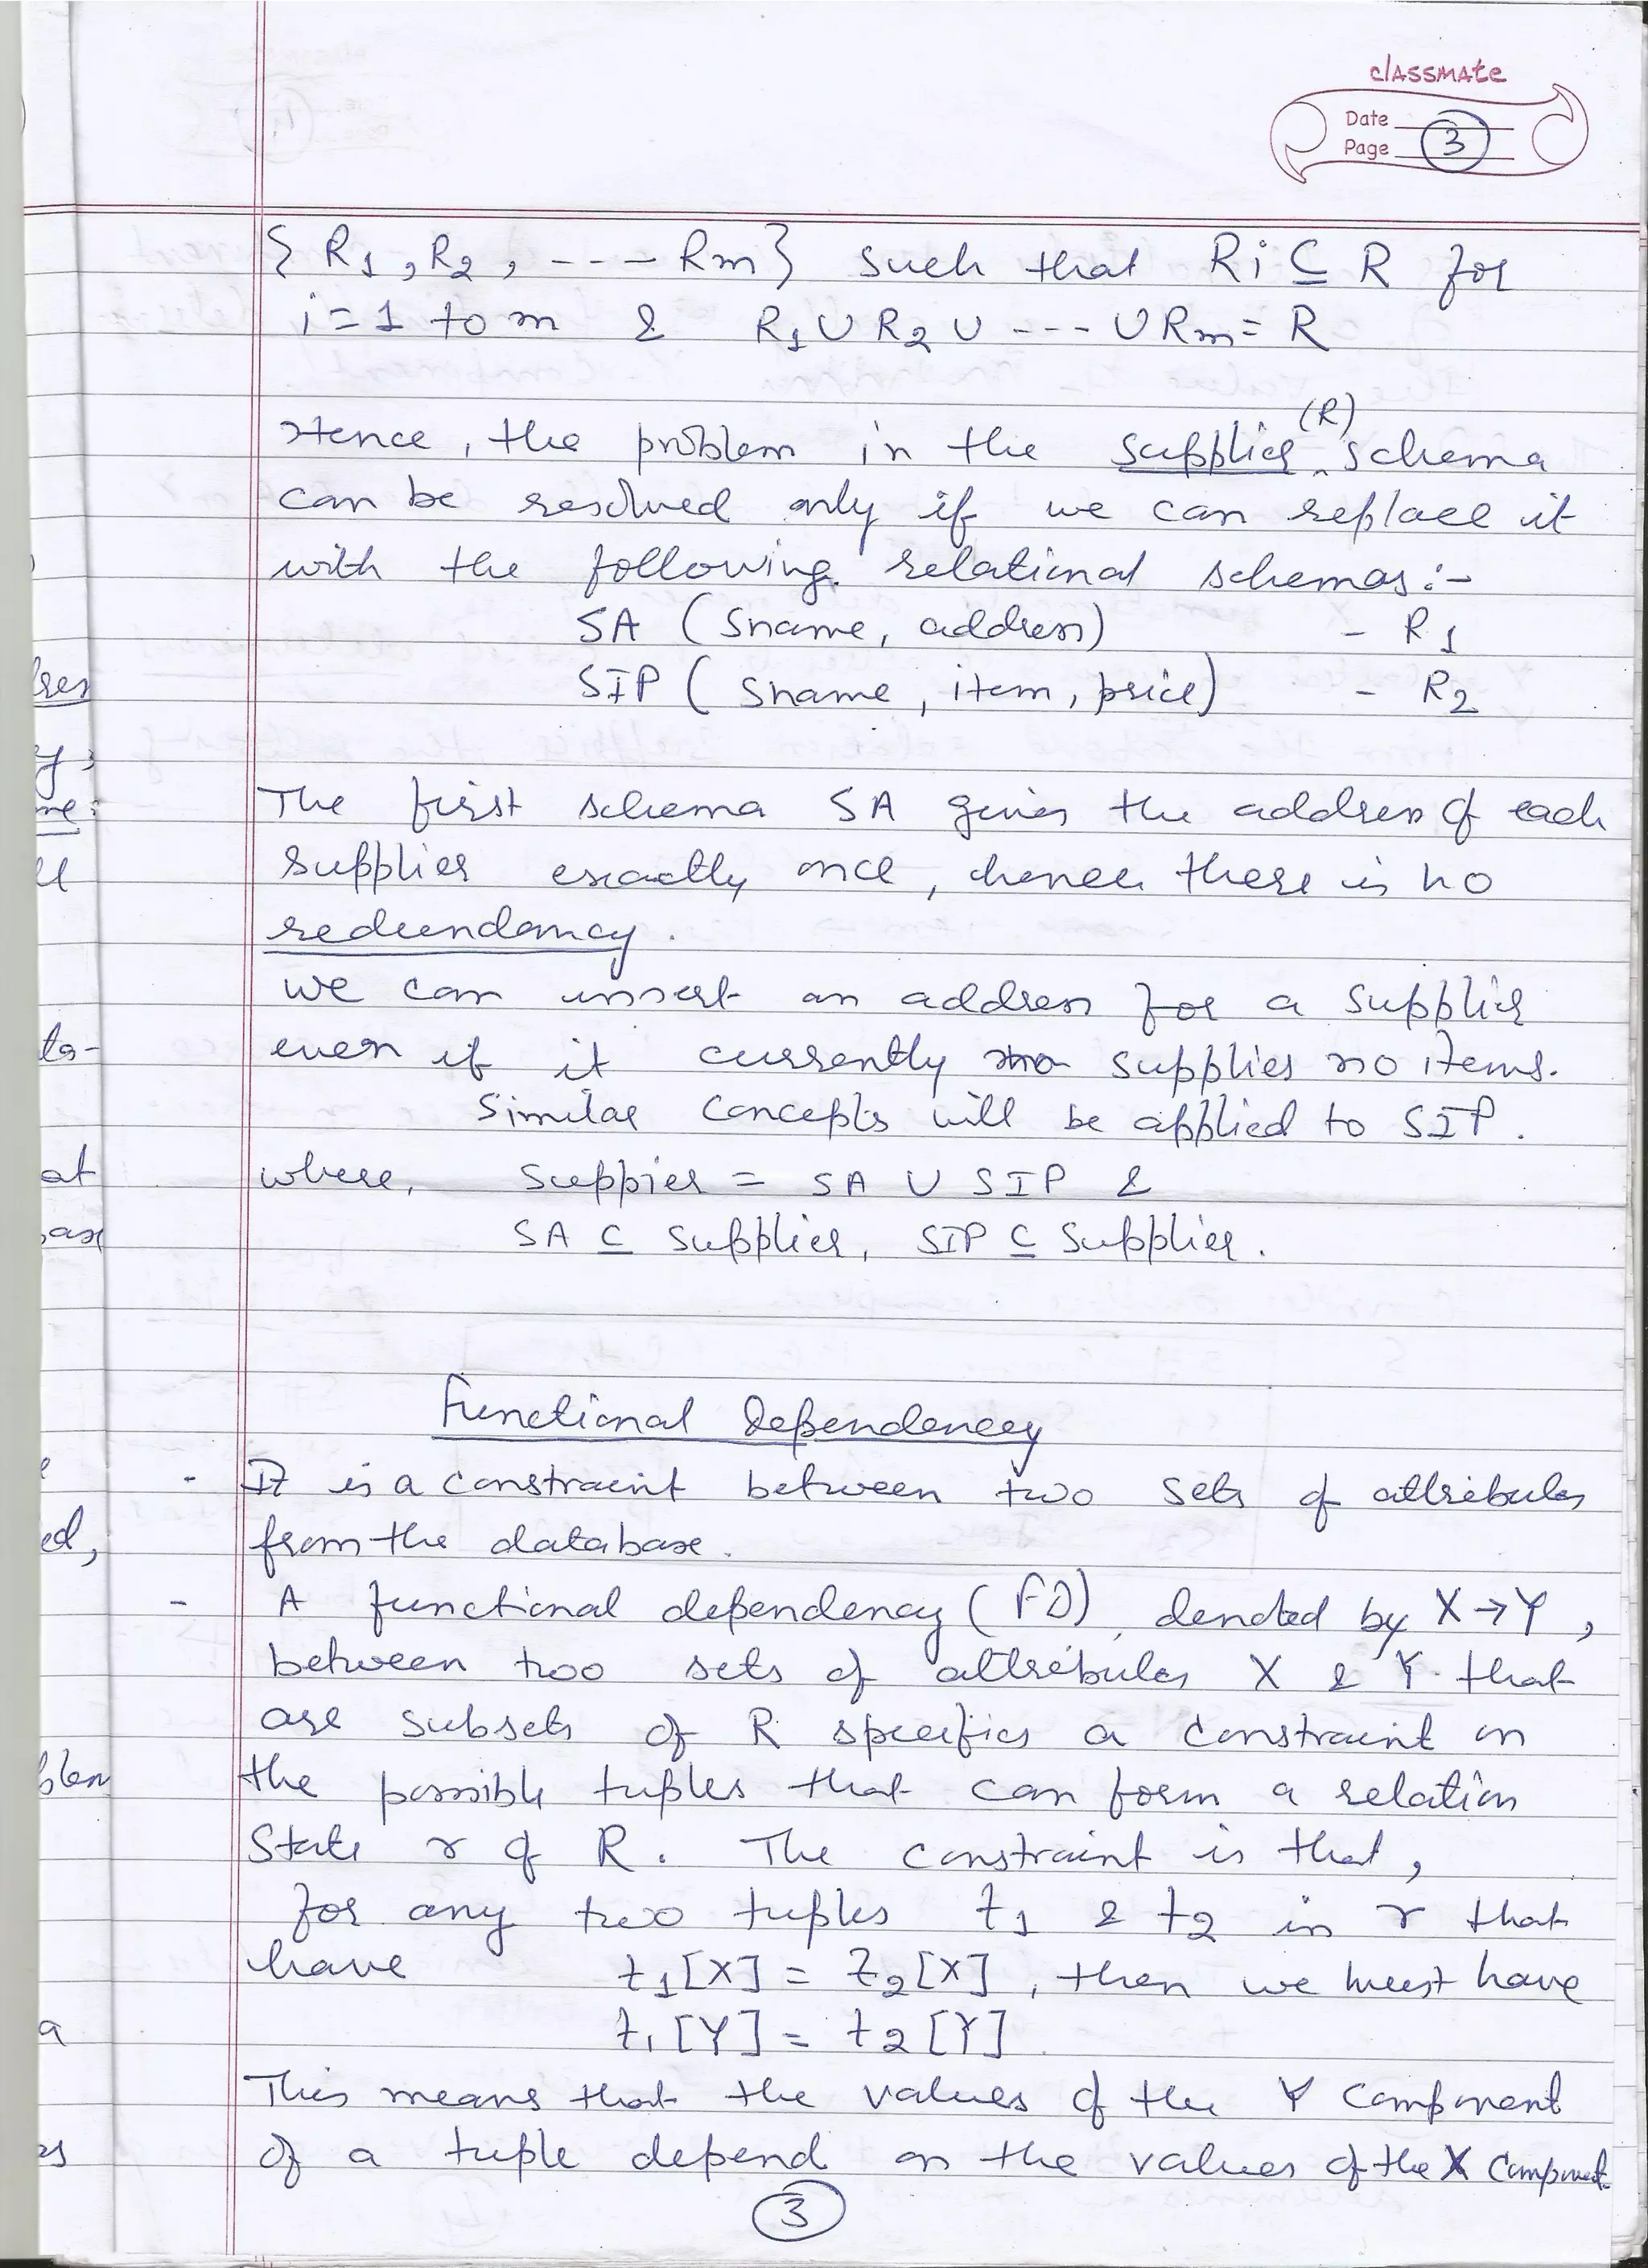 classmate
Date
Page 3
{ R1, R2, --- Rm} such that Ri ⊆ R for
i=1 to m & R1 U R2 U --- U Rm = R
(R)
Hence, the problem in the supplier schema
can be resolved only if we can replace it
with the following relational schemas:-
SA (Sname, address) - R1
SIP (Sname, item, price) - R2
The first schema SA gives the address of each
supplier exactly once, hence there is no
redundancy.
we can insert an address for a supplier
even if it currently supplies no items.
Similar concepts will be applied to SIP.
where, Suppier = SA U SIP &
SA ⊆ Supplier, SIP ⊆ Supplier.
Functional Dependency
- It is a constraint between two sets of attributes
from the database.
- A functional dependency (FD), denoted by X→Y,
between two sets of attributes X & Y that
are subsets of R specifies a constraint on
the possible tuples that can form a relation
State r of R. The constraint is that,
for any two tuples t1 & t2 in r that
have t1[X] = t2[X], then we must have
t1[Y] = t2[Y]
This means that the values of the Y component
of a tuple depend on the values of the X component.
3